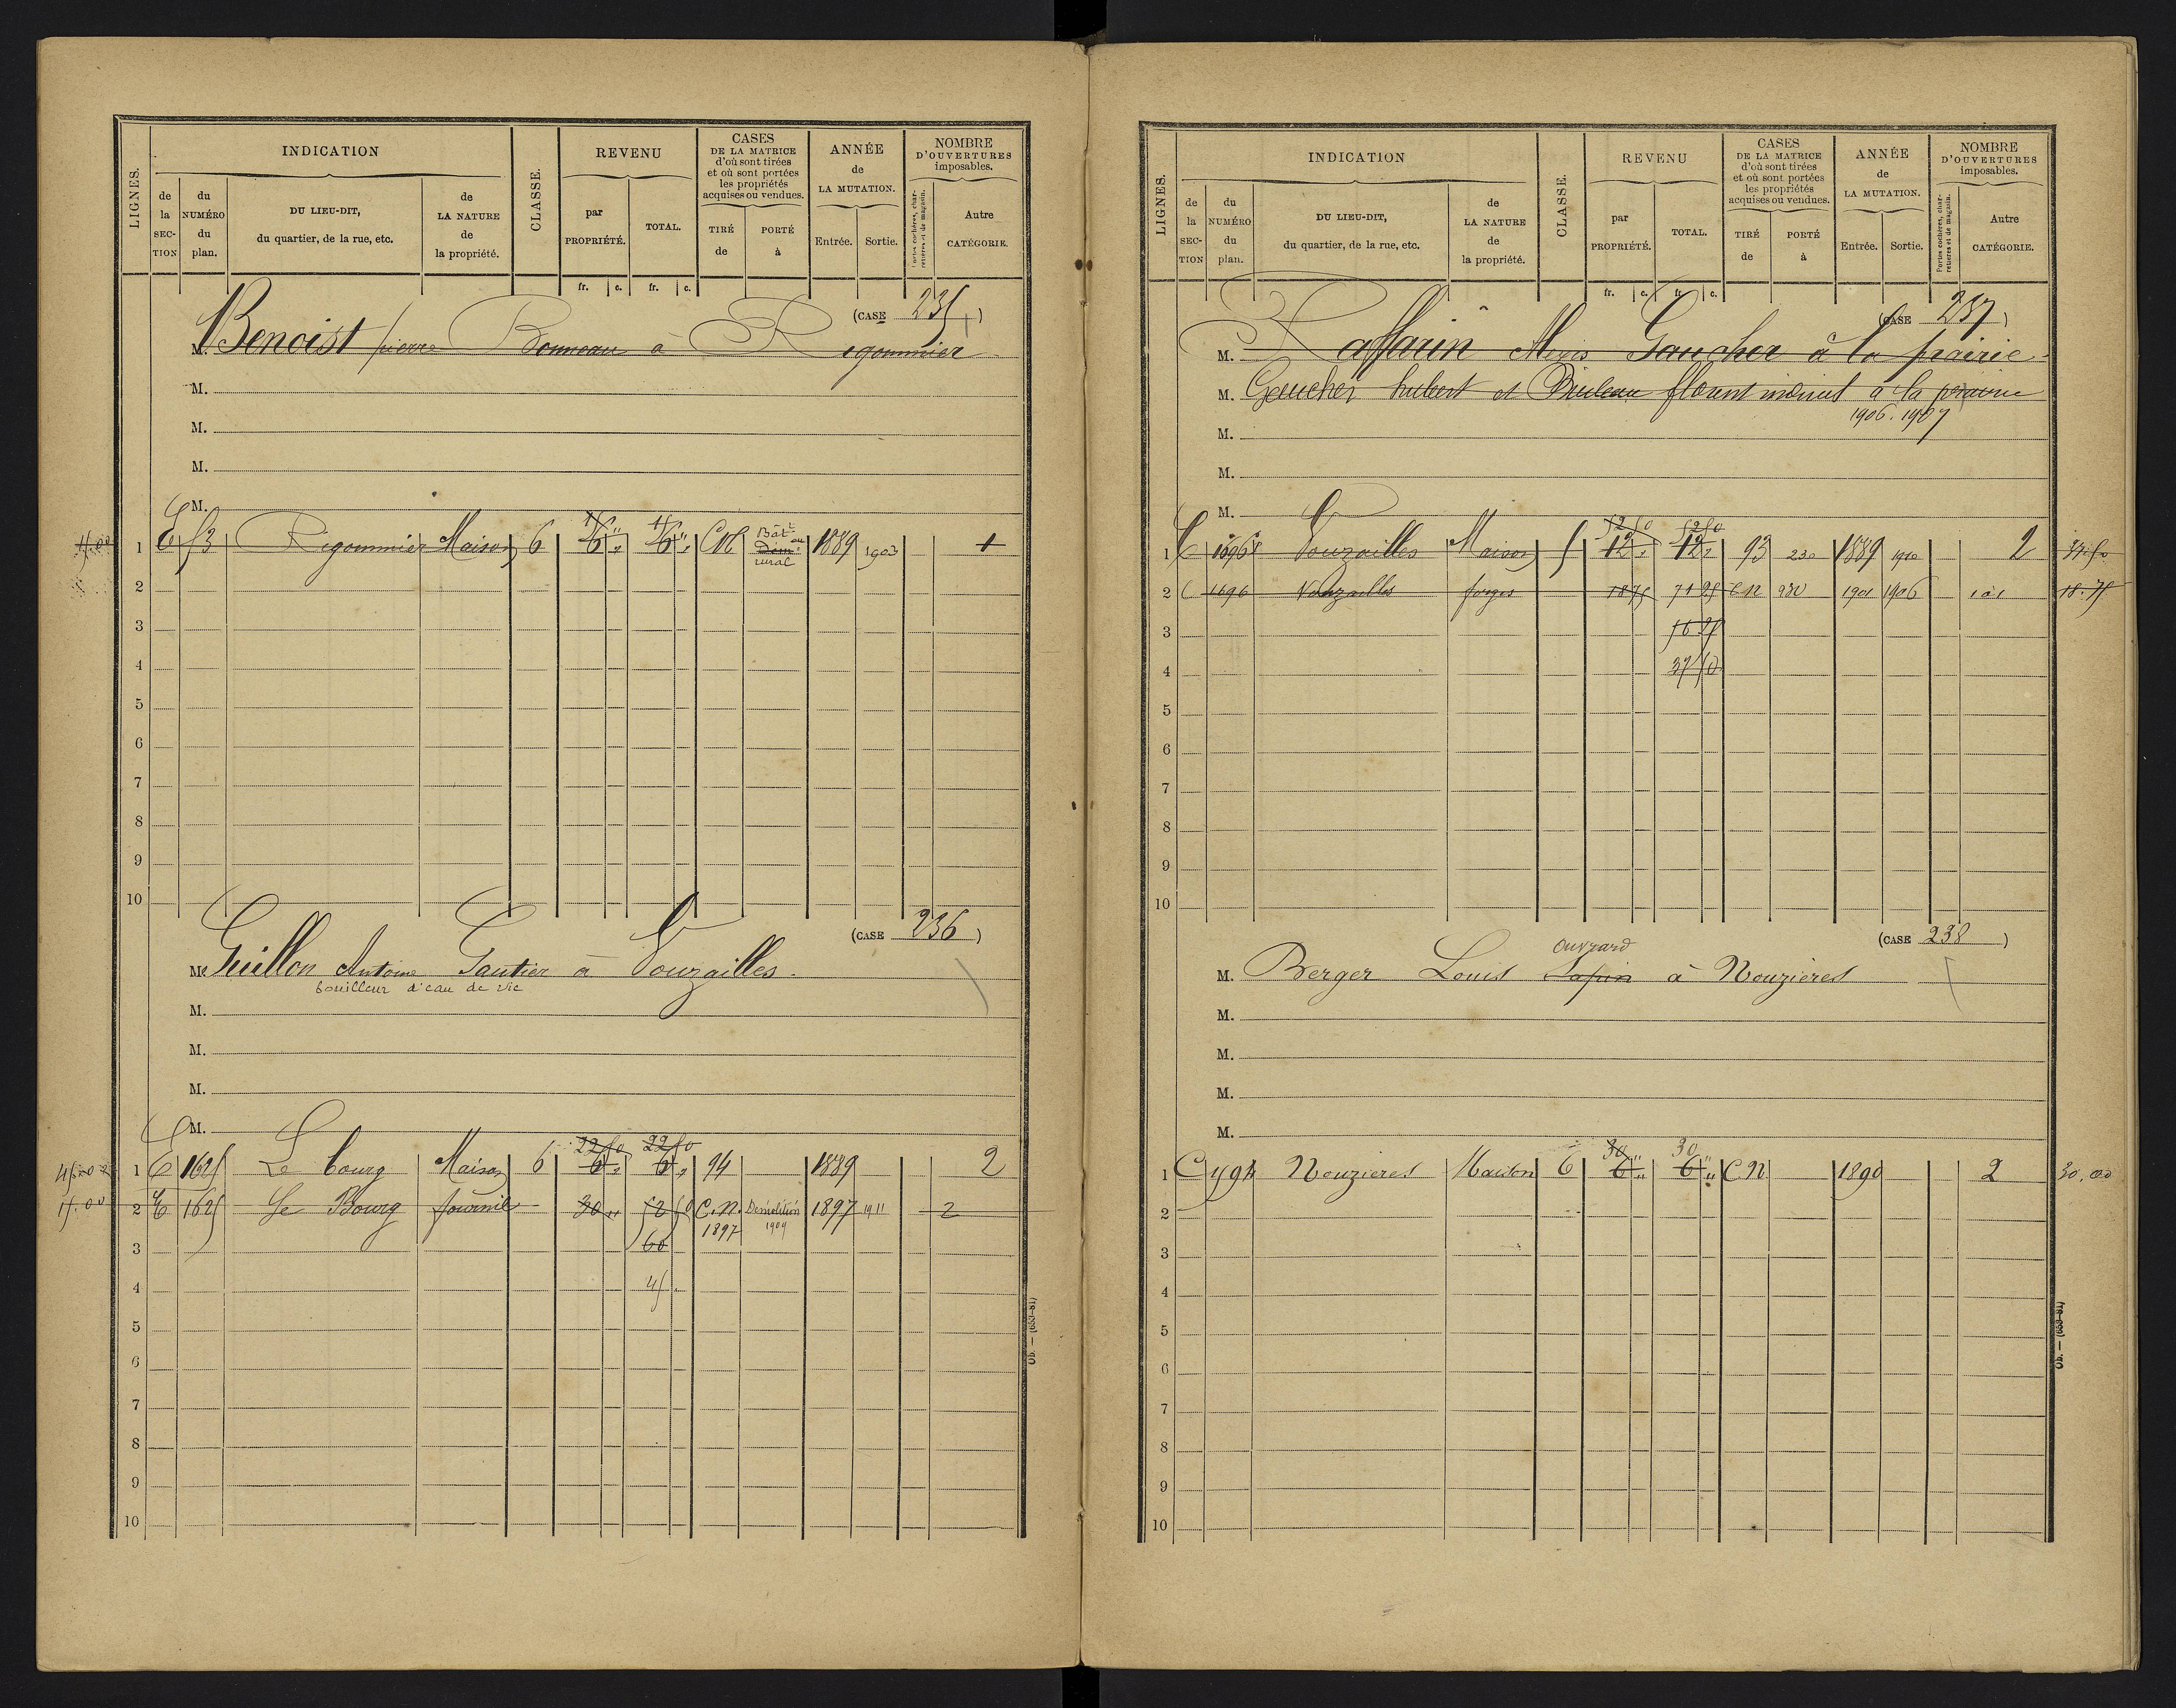 LIGNES.
INDICATION
CLASSE.
REVENU
CASES
DE LA MATRICE
d'où sont tirées
et où sont portées
les propriétés
acquises ou vendues.
ANNÉE
de
LA MUTATION.
NOMBRE
D'OUVERTURES
imposables.
de la SECTION
du NUMÉRO du plan.
DU LIEU-DIT,
du quartier, de la rue, etc.
de LA NATURE de la propriété.
par PROPRIÉTÉ.
TOTAL.
TIRÉ de
PORTÉ à
Entrée.
Sortie.
Portes cochères, charretières et de magasin.
Autre CATÉGORIE.
fr. c. fr. c.
(CASE 235)
M. Benoist pierre Bonneau à Rigommier
M.
M.
M.
M.
15.00 1 E 53 Rigommier Maison 6 15 " 6 " 15 " 6 " CN Bât.t au Dém. rural 1889 1903 1
2
3
4
5
6
7
8
9
10
(CASE 236)
M. Guillon Antoine Gautier à Vouzailles.
bouilleur d'eau de vie
M.
M.
M.
M.
45.00 1 E 1625 Le bourg Maison 6 22 50 6 " 22 50 6 " 94 1889 2
15.00 2 E 1625 Le Bourg fournil 30 " 52 50 C.N. 1897 Démolition 1909 1897 1911 2
3 60
4 45 "
5
6
7
8
9
10
Ob. — (653-81)
LIGNES.
INDICATION
CLASSE.
REVENU
CASES
DE LA MATRICE
d'où sont tirées
et où sont portées
les propriétés
acquises ou vendues.
ANNÉE
de
LA MUTATION.
NOMBRE
D'OUVERTURES
imposables.
de la SECTION
du NUMÉRO du plan.
DU LIEU-DIT,
du quartier, de la rue, etc.
de LA NATURE de la propriété.
par PROPRIÉTÉ.
TOTAL.
TIRÉ de
PORTÉ à
Entrée.
Sortie.
Portes cochères, charretières et de magasin.
Autre CATÉGORIE.
fr. c. fr. c.
(CASE 237)
M. Raffarin Alexis Gaucher à la prairie
M. Gaucher hubert et florent à la prairie
1906. 1907
M.
M.
M.
1 E 1696 Vouzailles Maison 5 52 50 12 " 52 50 12 " 93 230 1889 1910 2 37.50
2 E 1696 Vouzailles forges 18 75 71 25 CN 930 1901 1906 1 à 1 18.75
3 56 25
4 37 50
5
6
7
8
9
10
(CASE 238)
Ouvrard
M. Berger Louis Sapin à Nouzières
M.
M.
M.
M.
1 C 794 Nouzières Maison 6 30 " 6 " 30 " 6 " CN 1890 2 30.00
2
3
4
5
6
7
8
9
10
Ob. — (653-81)